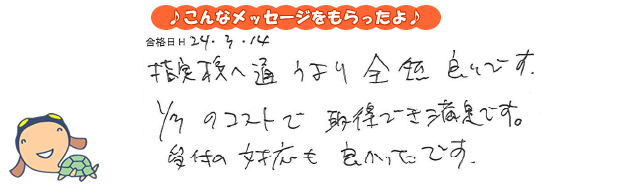 ♪こんなメッセージをもらったよ♪
合格日H 24.3.14
指定校へ通うより全然良いです。
1/3のコストで取得でき満足です。
受付の対応も良かったです。